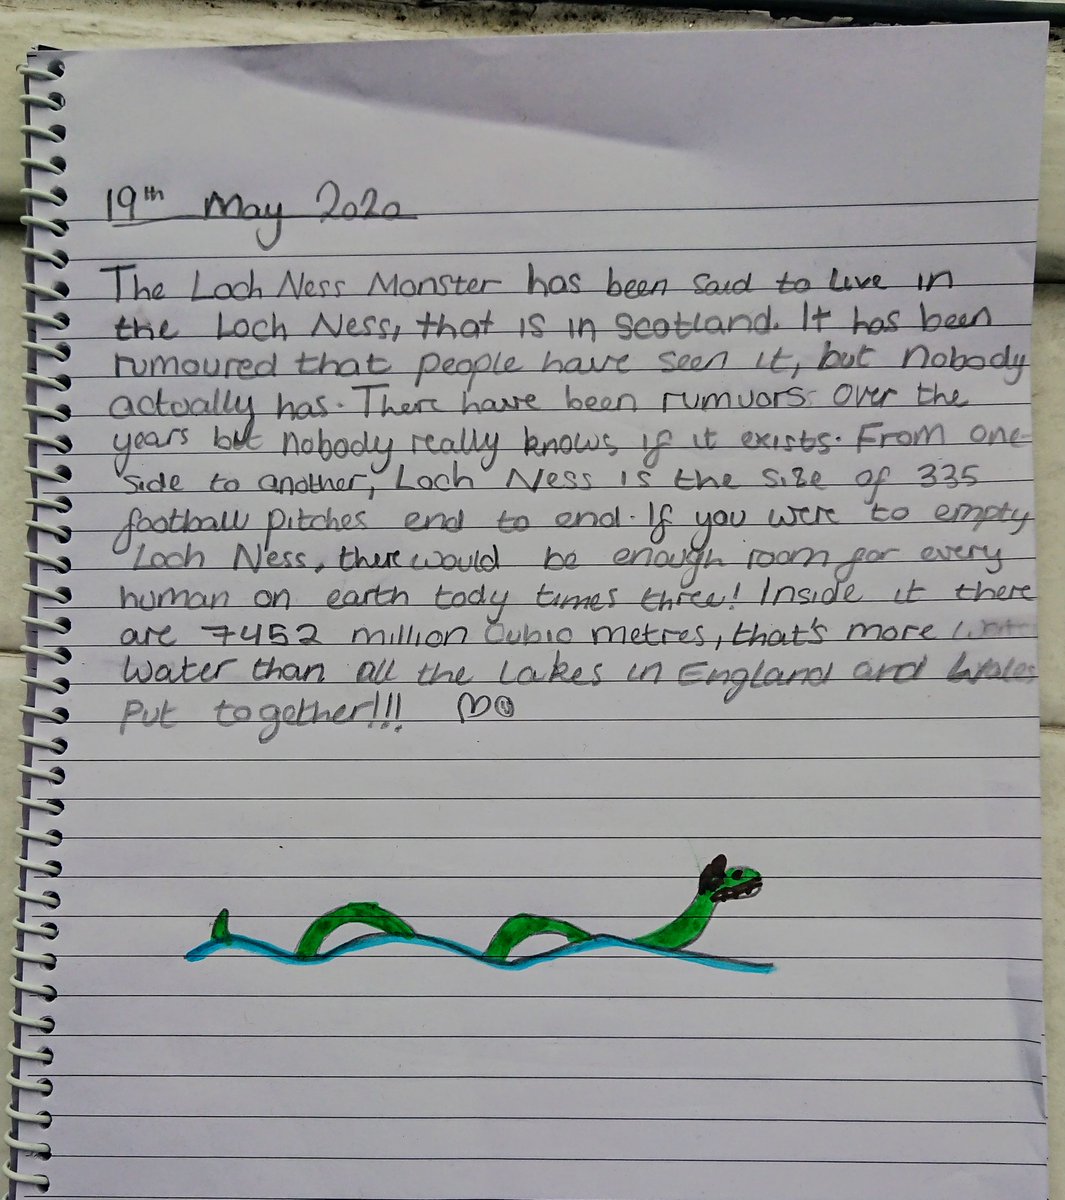 19th May 2020
The Loch Ness Monster has been said to live in
the Loch Ness, that is in Scotland. It has been
rumoured that people have seen it, but nobody
actually has. There have been rumuors over the
years but nobody really knows if it exists. From one
side to another, Loch Ness is the size of 335
football pitches end to end. If you were to empty
Loch Ness, there would be enough room for every
human on earth tody times three! Inside it there
are 7452 million cubic metres, that's more
water than all the lakes in England and Wales
put together!!!